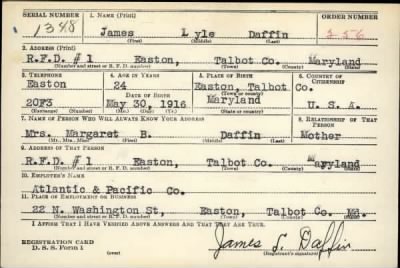 SERIAL NUMBER 1. NAME (Print) ORDER NUMBER
1348 James Lyle Daffin 256
(First) (Middle) (Last)
2. ADDRESS (Print)
R.F.D. # 1 Easton, Talbot Co. Maryland
(Number and street or R. F. D. number) (Town) (County) (State)
3. TELEPHONE 4. AGE IN YEARS 5. PLACE OF BIRTH 6. COUNTRY OF CITIZENSHIP
Easton 24 Easton, Talbot Co.
DATE OF BIRTH (Town or county)
20F3 May 30, 1916 Maryland U. S. A.
(Exchange) (Number) (Mo.) (Day) (Yr.) (State or country)
7. NAME OF PERSON WHO WILL ALWAYS KNOW YOUR ADDRESS 8. RELATIONSHIP OF THAT PERSON
Mrs. Margaret B. Daffin Mother
(Mr., Mrs., Miss) (First) (Middle) (Last)
9. ADDRESS OF THAT PERSON
R.F.D. # 1 Easton, Talbot Co. Maryland
(Number and street or R. F. D. number) (Town) (County) (State)
10. EMPLOYER'S NAME
Atlantic & Pacific Co.
11. PLACE OF EMPLOYMENT OR BUSINESS
22 N. Washington St, Easton, Talbot Co. Md.
(Number and street or R. F. D. number) (Town) (County) (State)
I AFFIRM THAT I HAVE VERIFIED ABOVE ANSWERS AND THAT THEY ARE TRUE.
REGISTRATION CARD
D. S. S. Form 1 (over) James L. Daffin